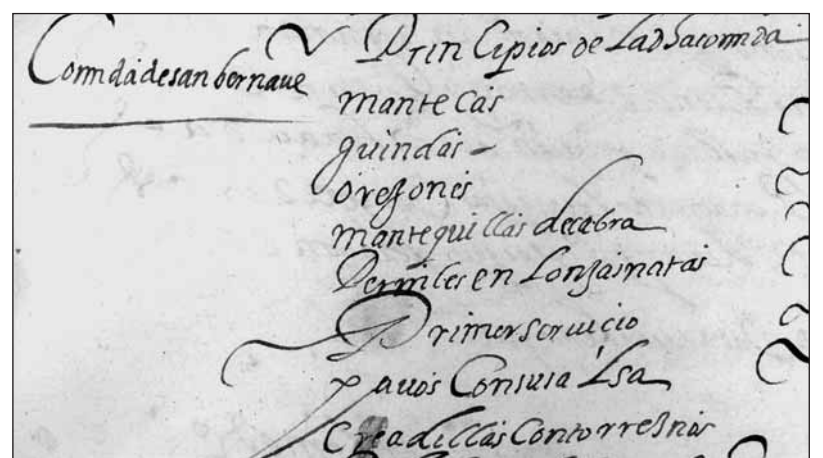 Comida de san bernaue
Principios de La dha comida
mantecas
guindas
orejones
mantequillas de cabra
Perniles en Lonjas natas
Primer seruicio
pauos Con su salsa
Creadillas Con torresnos